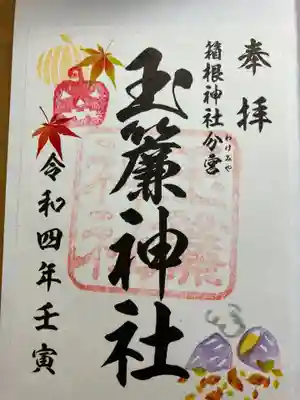 奉拝
箱根神社分宮
わけみや
玉簾神社
令和四年壬寅